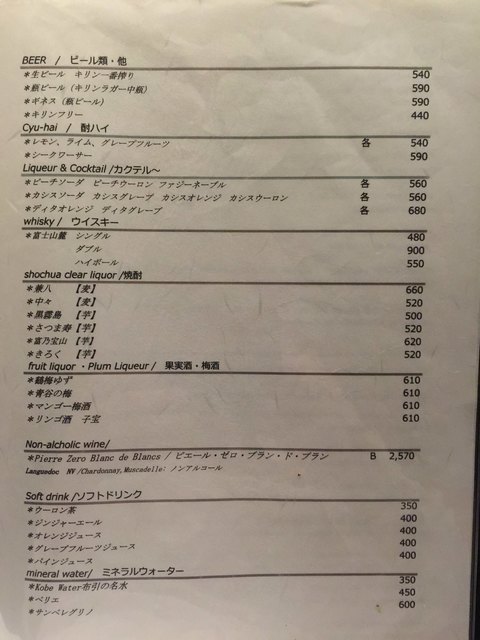 BEER / ビール類・他
*生ビール キリン一番搾り 540
*瓶ビール (キリンラガー中瓶) 590
*ギネス (瓶ビール) 590
*キリンフリー 440
Cyu-hai / 酎ハイ
*レモン、ライム、グレープフルーツ 各 540
*シークワーサー 590
Liqueur & Cocktail /カクテル～
*ピーチソーダ ピーチウーロン ファジーネーブル 各 560
*カシスソーダ カシスグレープ カシスオレンジ カシスウーロン 各 560
*ディタオレンジ ディタグレープ 各 680
whisky / ウイスキー
*富士山麓 シングル 480
ダブル 900
ハイボール 550
shochua clear liquor /焼酎
*兼八 【麦】 660
*中々 【麦】 520
*黒霧島 【芋】 500
*さつま寿【芋】 520
*富乃宝山 【芋】 620
*きろく 【芋】 520
fruit liquor ・Plum Liqueur / 果実酒・梅酒
*鶴梅ゆず 610
*青谷の梅 610
*マンゴー梅酒 610
*リンゴ酒 子宝 610
Non-alcholic wine/
*Pierre Zero Blanc de Blancs / ピエール・ゼロ・ブラン・ド・ブラン B 2,570
Languedoc NV /Chardonnay, Muscadelle: ノンアルコール
Soft drink /ソフトドリンク
*ウーロン茶 350
*ジンジャーエール 400
*オレンジジュース 400
*グレープフルーツジュース 400
*パインジュース 400
mineral water/ ミネラルウォーター
*Kobe Water布引の名水 350
*ペリエ 450
*サンペレグリノ 600